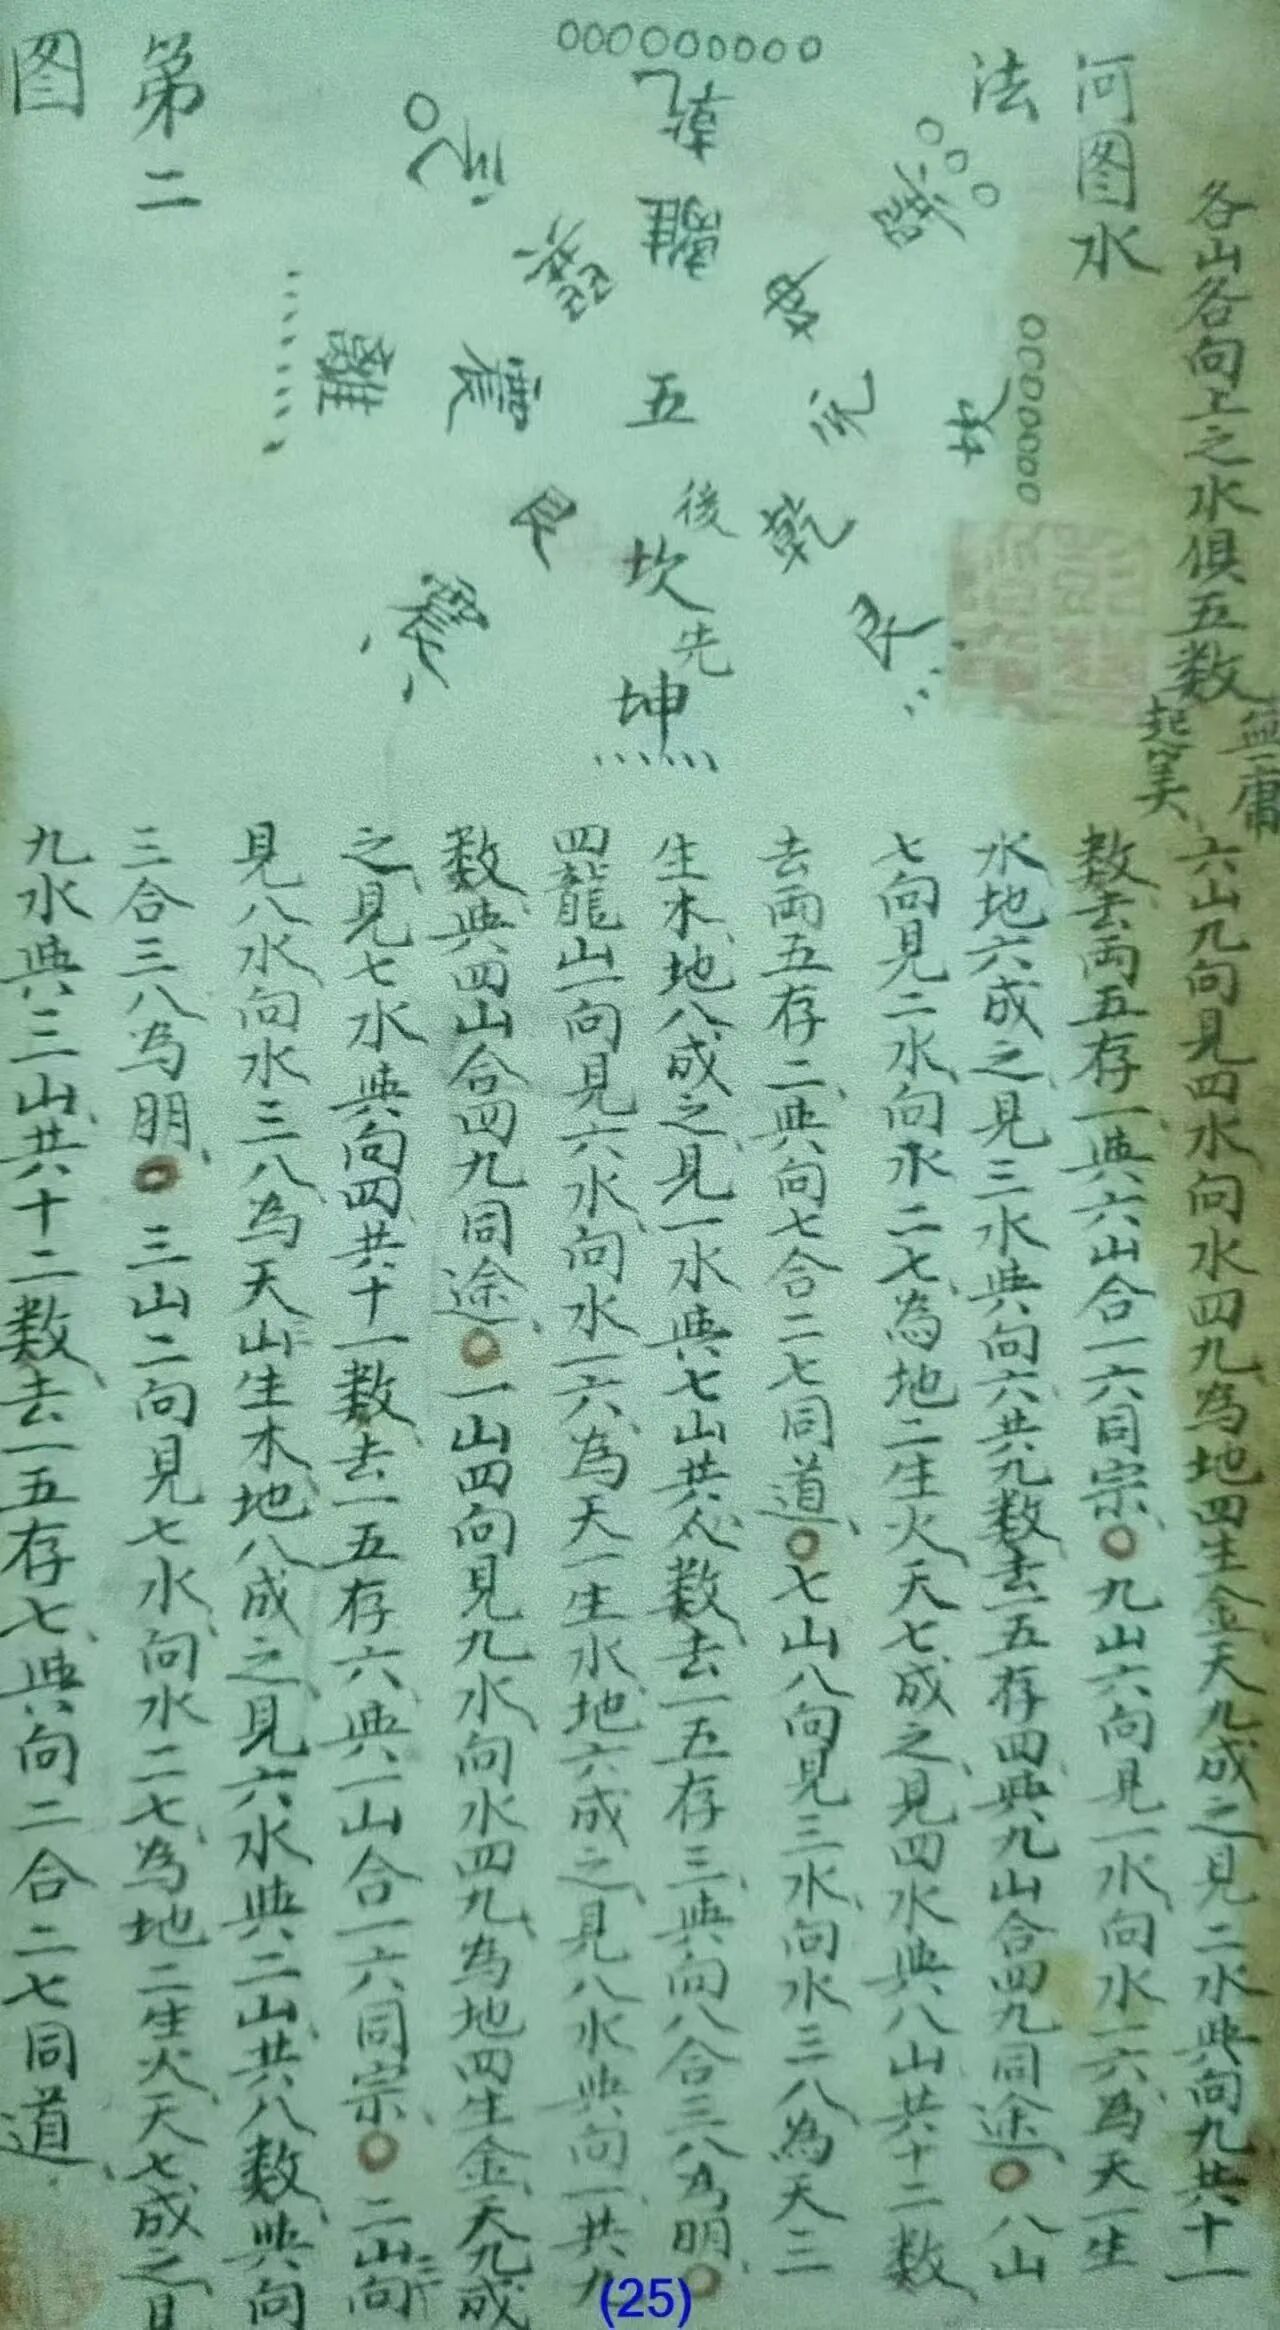 各山各向上之水俱五数
起算
河图水
法
乾
離
兌
巽
坤
震
五
兌
坎
離
艮
後
坎
乾
震
先
坤
艮
第二
图
六山九向見四水向水四九為地四生金天九成之見二水典向九共十一
数去両五存一典六山合一六同宗〇九山六向見一水向水一六為天一生
水地六成之見三水典向六共九数去一五存四典九山合四九同途〇八山
七向見二水向水二七為地二生火天七成之見四水典八山共十二数
去両五存二典向七合二七同道〇七山八向見三水向水三八為天三
生木地八成之見一水典七山共八数去一五存三典向八合三八為明〇
四龍山一向見六水向水一六為天一生水地六成之見八水典向一共九
数典四山合四九同途〇一山四向見九水向水四九為地四生金天九成
之見七水典向四共十一数去一五存六典一山合一六同宗〇二山三向
見八水向水三八為天山生木地八成之見六水典二山共八数典向
三合三八為明〇三山二向見七水向水二七為地二生火天七成之見
九水典三山共十二数去一五存七典向二合二七同道
(25)